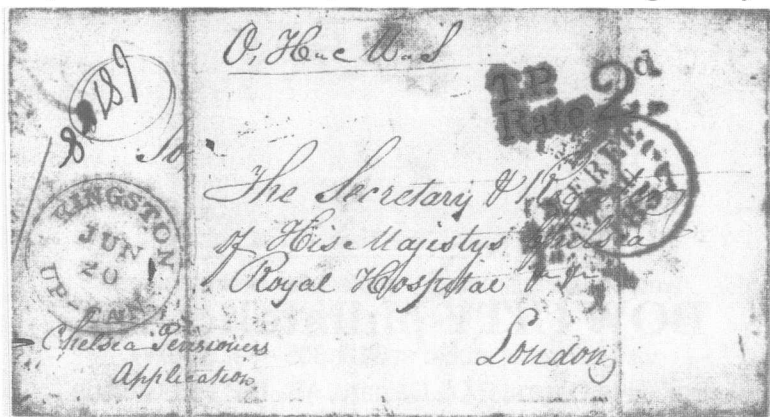 O. H. M. S
T.P.
Rate 2d
FREE
1837
To,
The Secretary &
of His Majestys Chelsea
Royal Hospital &c &c
London
KINGSTON
JUN
20
UP-CAN
Chelsea Pensioners
Application